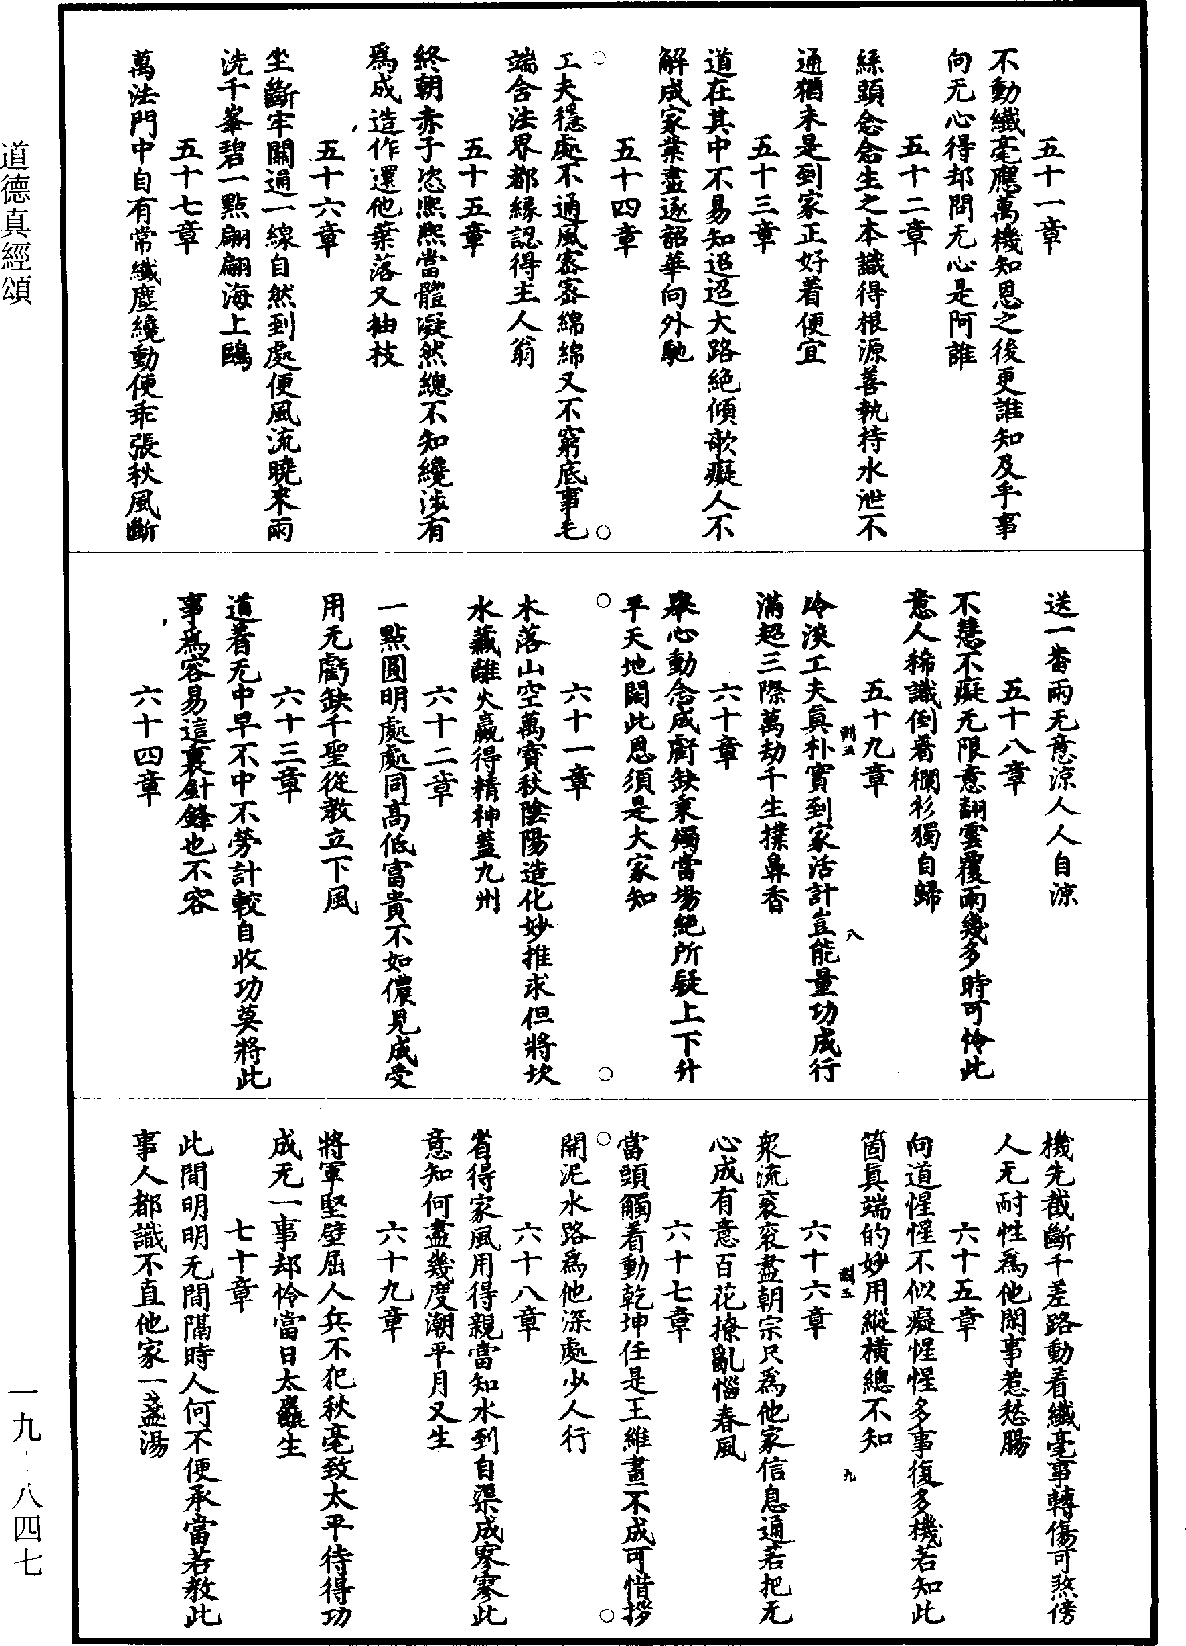 道德真經頌
五十一章
不動纖毫應萬機知恩之後更誰知及乎事
向无心得却問无心是阿誰
五十二章
絲頭念念生之本識得根源善執持水泄不
通猶未是到家正好着便宜
五十三章
道在其中不易知迢迢大路絕傾欹癡人不
解成家業盡逐韶華向外馳
五十四章
工夫穩處不通風密密綿綿又不窮底事毛
端含法界都緣認得主人翁
五十五章
終朝赤子恣熙熙當體凝然總不知纔涉有
爲成造作還他葉落又抽枝
五十六章
坐斷牢關通一線自然到處便風流曉來雨
洗千峯碧一點翩翩海上鷗
五十七章
萬法門中自有常纖塵纔動便乖張秋風斷
送一番雨无意涼人人自涼
五十八章
不慧不癡无限意翻雲覆雨幾多時可怜此
意人稀識倒着襴衫獨自歸
五十九章
冷淡工夫眞朴實到家活計豈能量功成行
滿超三際萬劫千生撲鼻香
八
六十章
舉心動念成虧缺秉燭當場絕所疑上下升
平天地闊此恩須是大家知
六十一章
木落山空萬寶秋陰陽造化妙推求但將坎
水藏離火贏得精神蓋九州
六十二章
一點圓明處處同高低富貴不如儂見成受
用无虧缺千聖從教立下風
六十三章
道着无中早不中不勞計較自收功莫將此
事爲容易這裏針鋒也不容
六十四章
機先截斷千差路動着纖毫事轉傷可煞傍
人无耐性爲他閑事惹愁腸
六十五章
向道惺惺不似癡惺惺多事復多機若知此
箇眞端的妙用縱橫總不知
九
六十六章
衆流衮衮盡朝宗只爲他家信息通若把无
心成有意百花撩亂惱春風
六十七章
當頭觸着動乾坤任是王維畫不成可惜拶
開泥水路爲他深處少人行
六十八章
省得家風用得親當知水到自渠成寥寥此
意知何盡幾度潮平月又生
六十九章
將軍堅壁屈人兵不犯秋毫致太平待得功
成无一事却怜當日太麤生
七十章
此間明明无間隔時人何不便承當若教此
事人都識不直他家一盞湯
一九·八四七